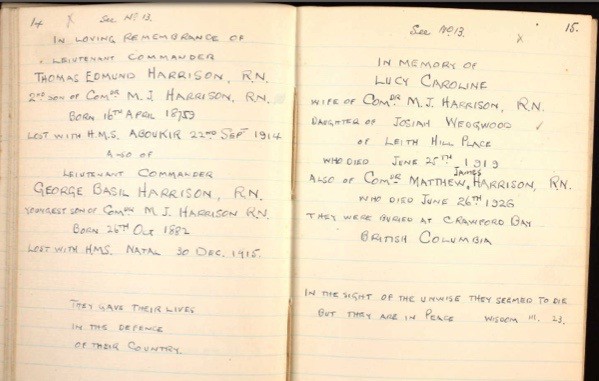 14 x See No 13.
IN LOVING REMEMBRANCE OF
LIEUTENANT COMMANDER
THOMAS EDMUND HARRISON, R.N.
2ND SON OF COMDR M. J. HARRISON, R.N.
BORN 16TH APRIL
LOST WITH H.M.S. ABOUKIR 22ND SEPT 1914
ALSO OF
LIEUTENANT COMMANDER
GEORGE BASIL HARRISON, R.N.
YOUNGEST SON OF COMDR M. J. HARRISON R.N.
BORN 26TH OCT 1882
LOST WITH HMS. NATAL 30 DEC. 1915.
THEY GAVE THEIR LIVES
IN THE DEFENCE
OF THEIR COUNTRY.
See No 13. x 15.
IN MEMORY OF
LUCY CAROLINE
WIFE OF COMDR M. J. HARRISON, R.N.
DAUGHTER OF JOSIAH WEDGWOOD ✓
OF LEITH HILL PLACE
WHO DIED JUNE 25TH 1919
ALSO OF COMDR MATTHEW JAMES HARRISON, R.N.
WHO DIED JUNE 26TH 1926
THEY WERE BURIED AT CRAWFORD BAY
BRITISH COLUMBIA
IN THE SIGHT OF THE UNWISE THEY SEEMED TO DIE
BUT THEY ARE IN PEACE WISDOM III. 23.